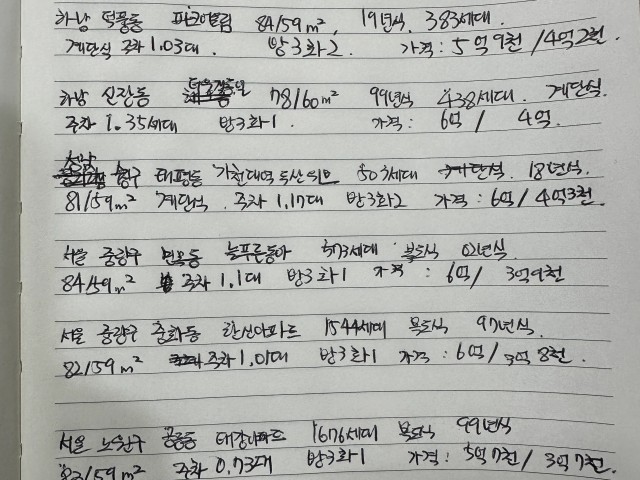 하남 덕풍동 파크아트림 84/59m², 19년식. 383세대.
계단식 주차 1.03대. 방3화2. 가격: 5억9천/4억2천.
하남 신장동 78/60m² 99년식 438세대. 계단식.
주차 1.35세대 방3화1. 가격: 6억/4억.
태평동 가천대역 두산위브 503세대 계단식. 18년식.
81/59m² 계단식. 주차 1.17대 방3화2 가격: 6억/4억3천.
서울 중랑구 면목동 늘푸른동아 573세대 복도식 02년식
84/59m² 주차 1.1대 방3화1 가격: 6억/3억9천
서울 중랑구 중화동 한신아파트 1544세대 복도식 97년식.
82/59m² 주차 1.01대 방3화1 가격: 6억/3억8천.
서울 노원구 공릉동 태강아파트 1676세대 복도식 99년식
83/59m² 주차 0.73대 방3화1 가격: 5억7천/3억7천.